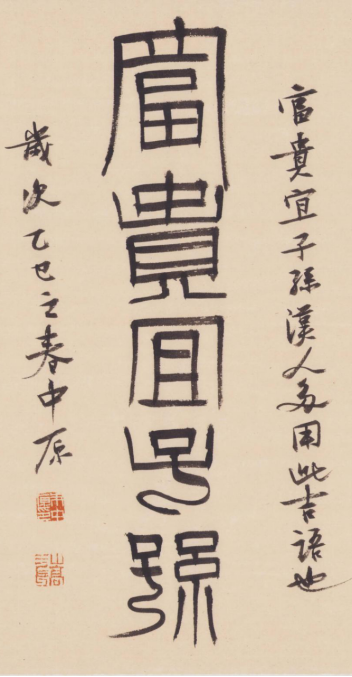 富貴宜子孫漢人多用此吉語也
富貴宜子孫
歲次乙巳之春中原
山高